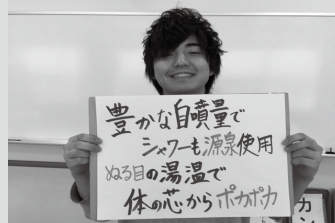 豊かな自噴量で
シャワーも源泉使用
ぬる目の湯温で
体の芯からポカポカ
カン